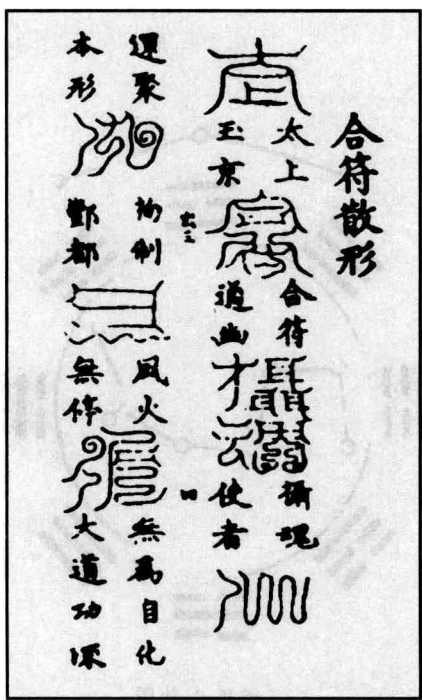 合符散形
太上
玉京
合符
通幽
攝魂
使者
還聚
本形
拘制
酆都
風火
無停
無為自化
大道功深